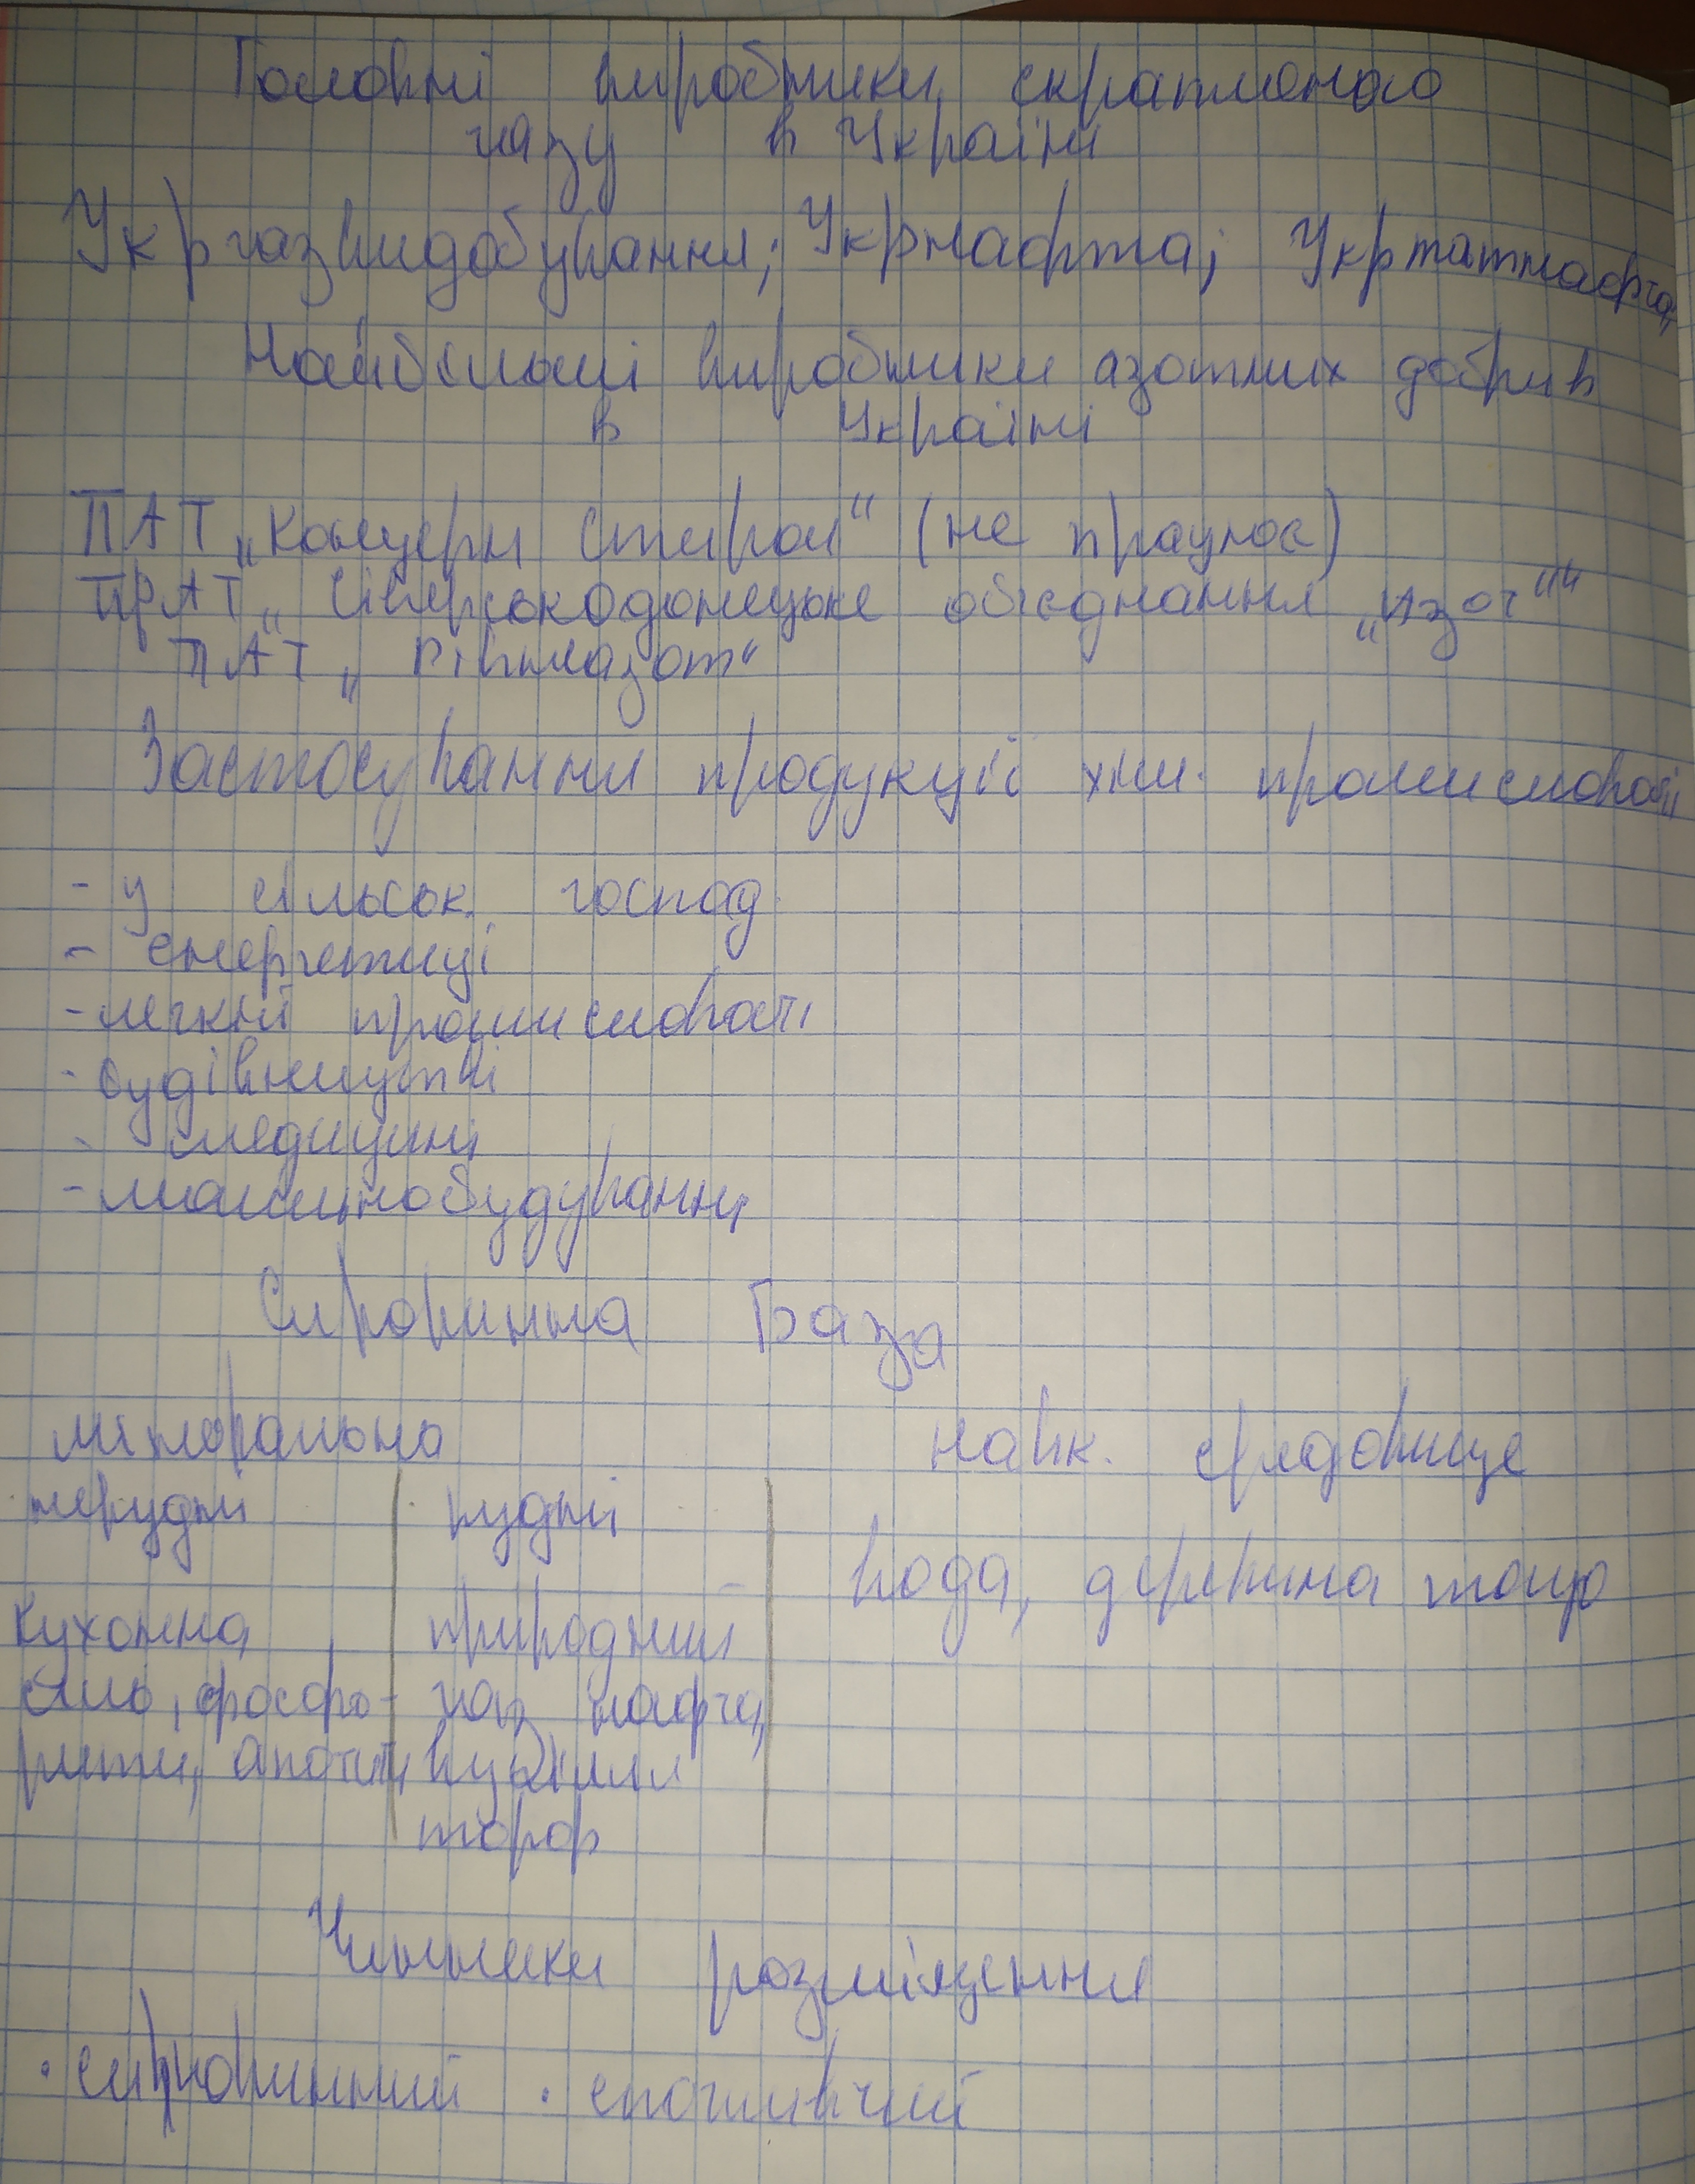 Головні виробники скрапленого
газу в Україні
Укргазвидобування; Укрнафта; Укртатнафта;
Найбільші виробники азотних добрив
в Україні
ПАТ „Концерн Стирол“ (не працює)
ПРАТ „Сіверськодонецьке обєднання „Азот““
ПАТ „Рівнеазот“
Застосування продукції хім. промисловості
- у сільськ. господ.
- енергетиці
- легкій промисловості
- будівництві
- медицині
- машинобудуванні
Сировинна База
мінеральна навк. середовище
нерудні рудні
вода, деревина тощо
кухонна природний
сіль, фосфо- газ, нафта,
рити, апатити, вугілля
торф
Чинники розміщення
· сировинний · споживчий